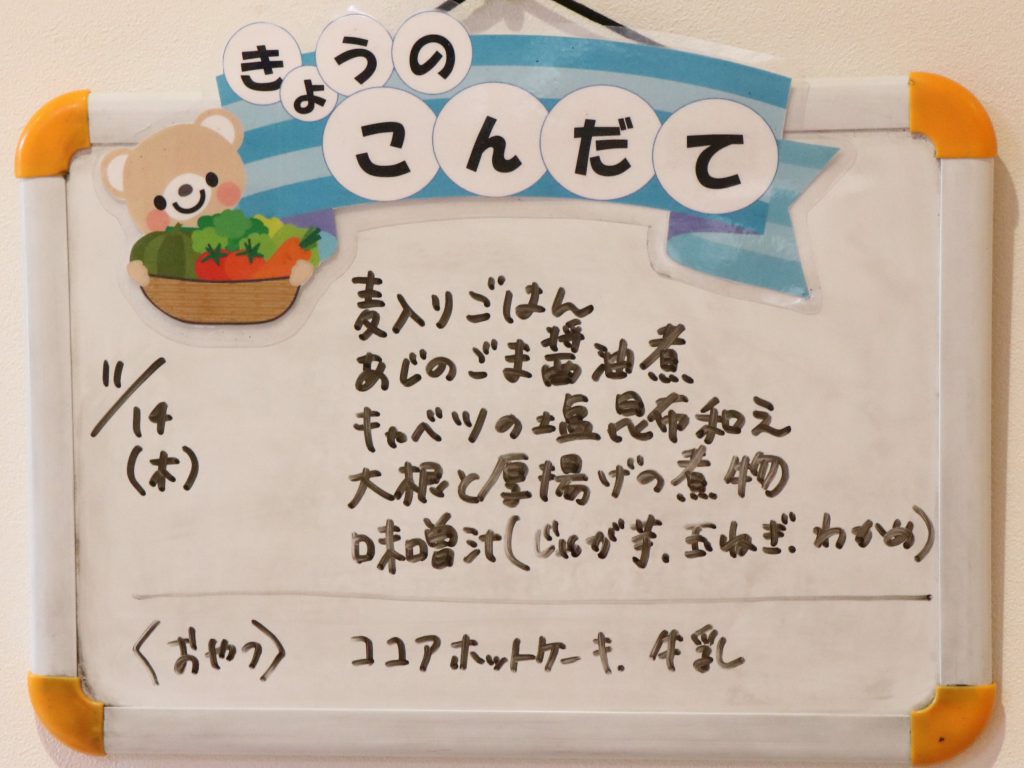 きょうの
こんだて
麦入りごはん
あじのごま醤油煮
11/14
(木)
キャベツの塩昆布和え
大根と厚揚げの煮物
味噌汁(じゃが芋、玉ねぎ、わかめ)
〈おやつ〉 ココアホットケーキ、牛乳